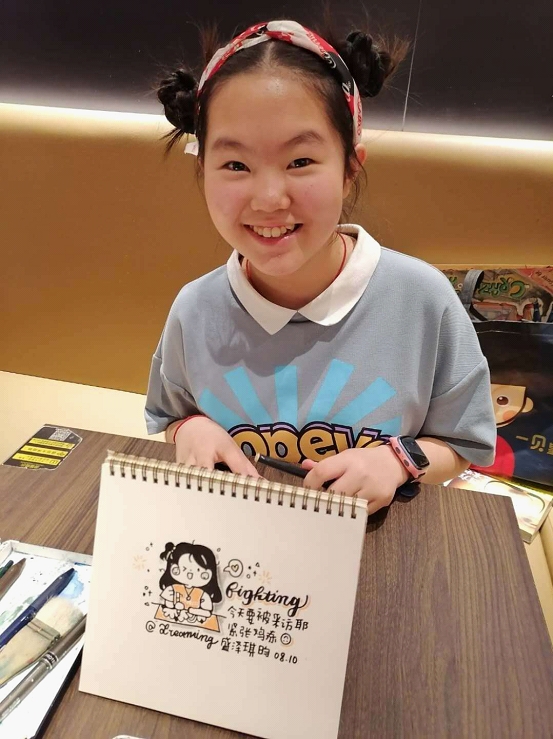 fighting
今天要被采访耶
紧张鸡冻
@ Dreaming 盛泽琪昀 08.10
opey